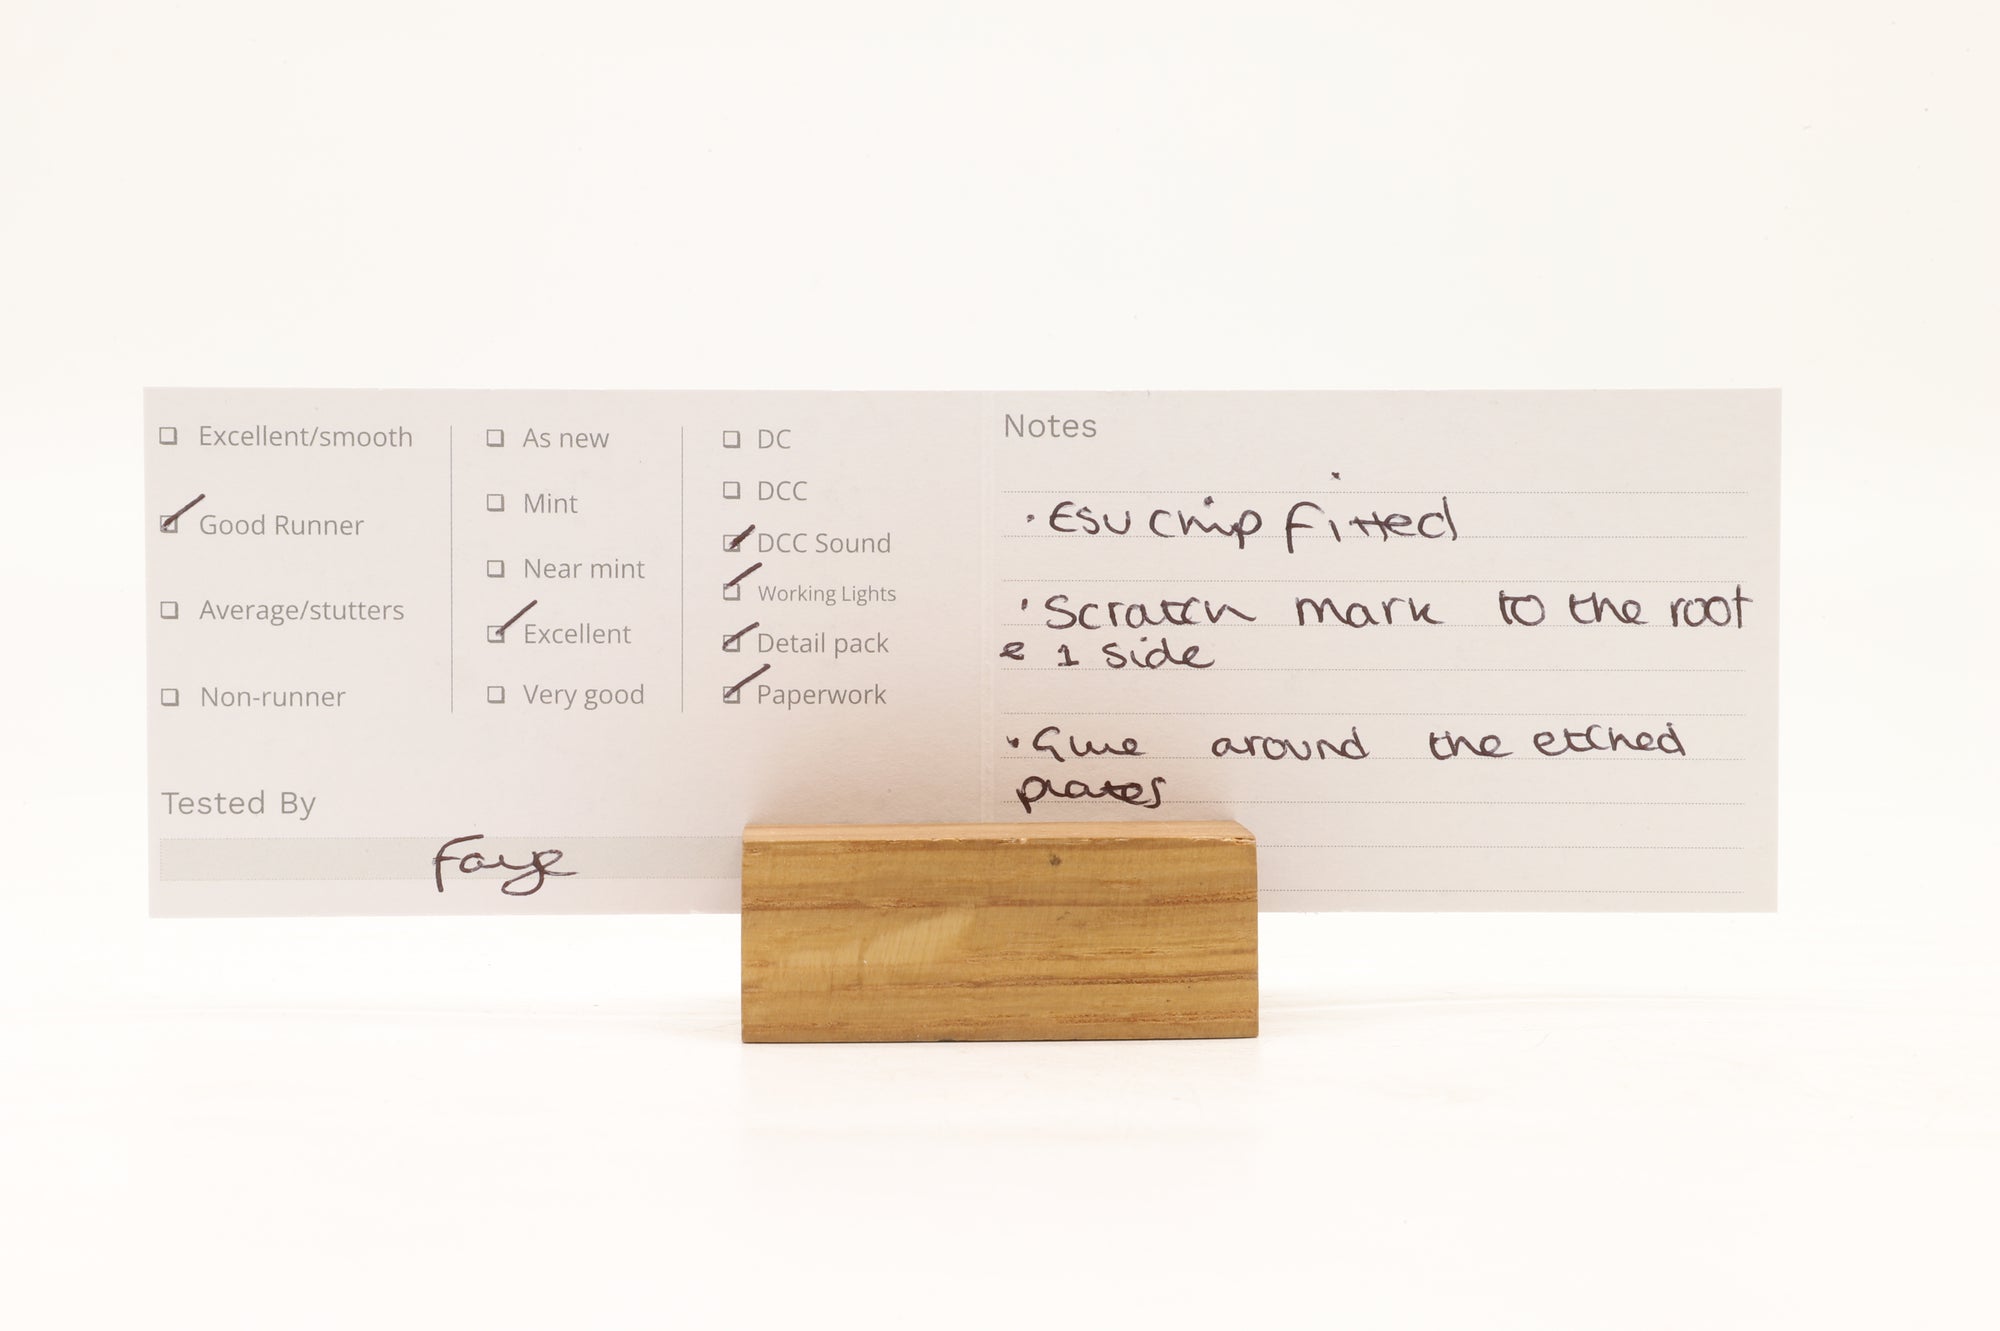 Excellent/smooth
Good Runner
Average/stutters
Non-runner
As new
Mint
Near mint
Excellent
Very good
DC
DCC
DCC Sound
Working Lights
Detail pack
Paperwork
Tested By
Faye
Notes
· ESU Chip Fitted
· Scratch mark to the roof
& 1 side
· Glue around the etched
plates